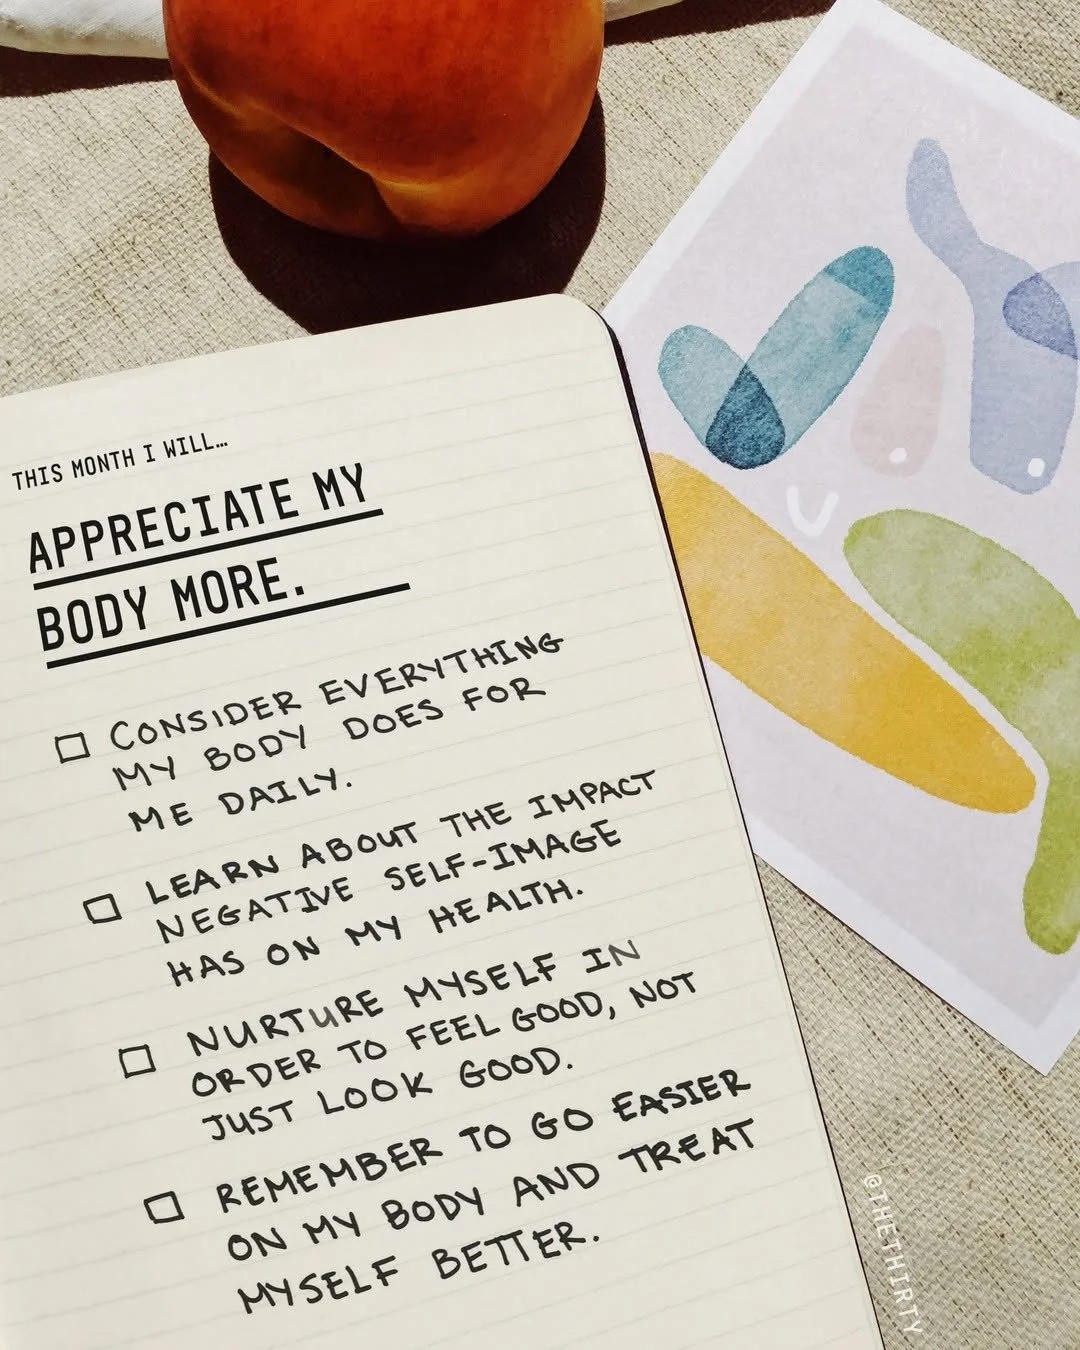 THIS MONTH I WILL...
APPRECIATE MY
BODY MORE.
CONSIDER EVERYTHING
MY BODY DOES FOR
ME DAILY.
LEARN ABOUT THE IMPACT
NEGATIVE SELF-IMAGE
HAS ON MY HEALTH.
NURTURE MYSELF IN
ORDER TO FEEL GOOD, NOT
JUST LOOK GOOD.
REMEMBER TO GO EASIER
ON MY BODY AND TREAT
MYSELF BETTER.
@THETHIRTY